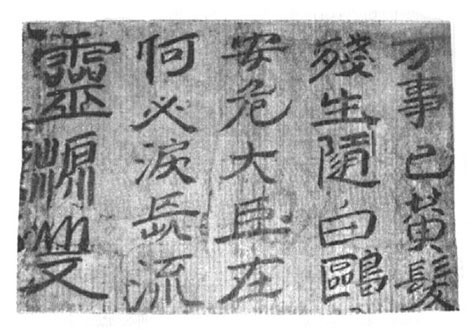 万事已黄髮
殘生隨白鷗
安危大臣在
何必淚長流
靈源叟